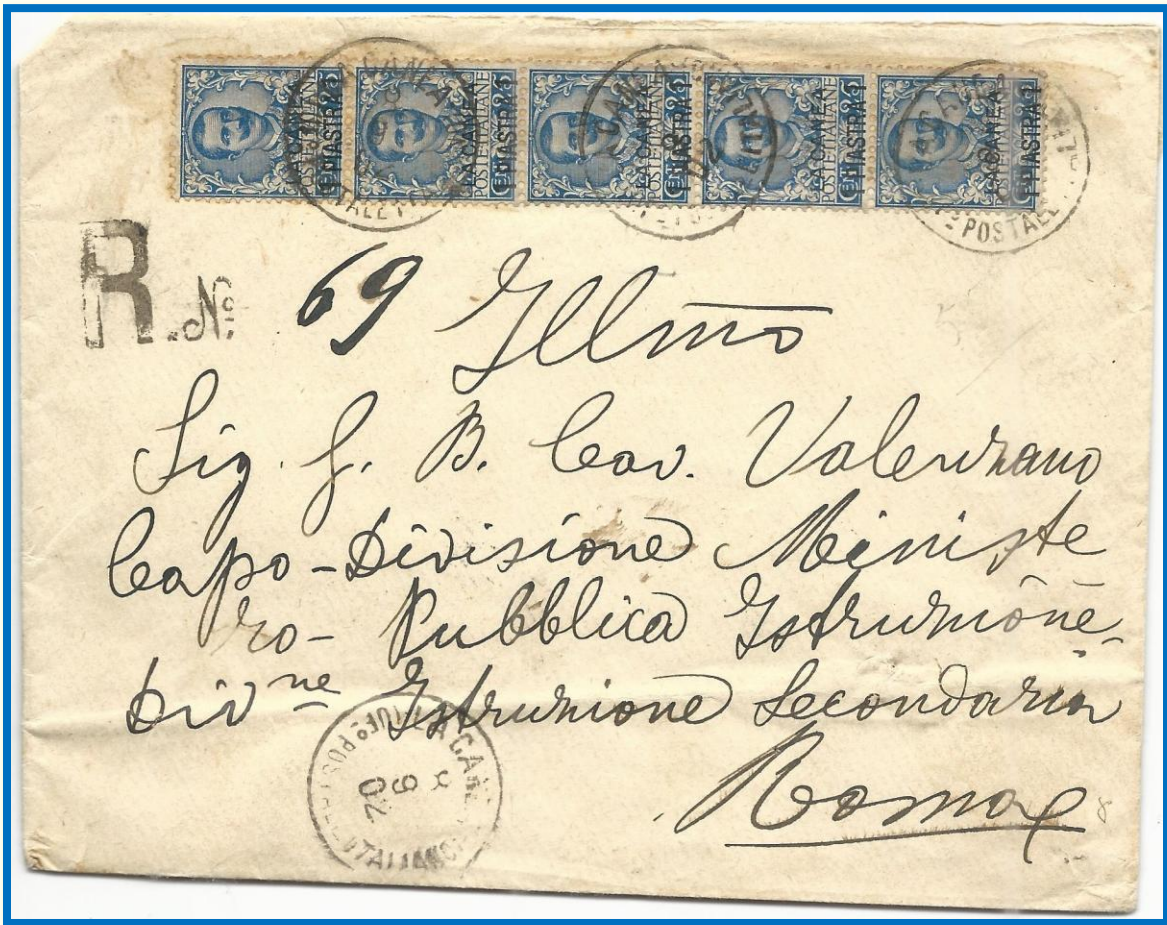 LA CANEA POSTE ITALIANE 1 PIASTRA 1 CENT. 25
LA CANEA POSTE ITALIANE 1 PIASTRA 1 CENT. 25
LA CANEA POSTE ITALIANE 1 PIASTRA 1 CENT. 25
LA CANEA POSTE ITALIANE 1 PIASTRA 1 CENT. 25
LA CANEA POSTE ITALIANE 1 PIASTRA 1 CENT. 25
R. Nº 69
Illmo
Sig. G. B. Cav. Valenzano
Capo-Divisione Ministe
ro- Pubblica Istruzione-
Divne Istruzione Secondaria
Roma
LA CANEA
UFº POSTALE ITALIANO
8
9
02